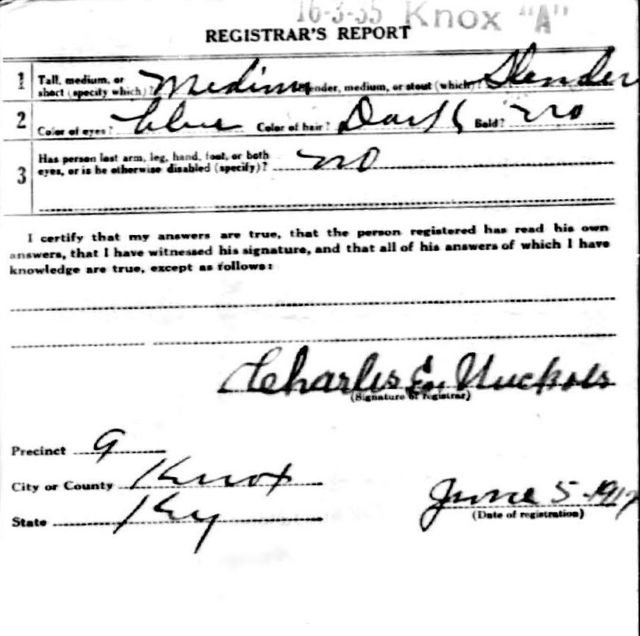 16-3-35 Knox "A"
REGISTRAR'S REPORT
1 Tall, medium, or short (specify which)? Medium Slender, medium, or stout (which)? Slender
2 Color of eyes? blue Color of hair? Dark Bald? no
3 Has person lost arm, leg, hand, foot, or both
eyes, or is he otherwise disabled (specify)? no
I certify that my answers are true, that the person registered has read his own
answers, that I have witnessed his signature, and that all of his answers of which I have
knowledge are true, except as follows:
Charles E. Nuckols
(Signature of registrar)
Precinct 9
City or County Knox
State Ky
June 5-1917
(Date of registration)